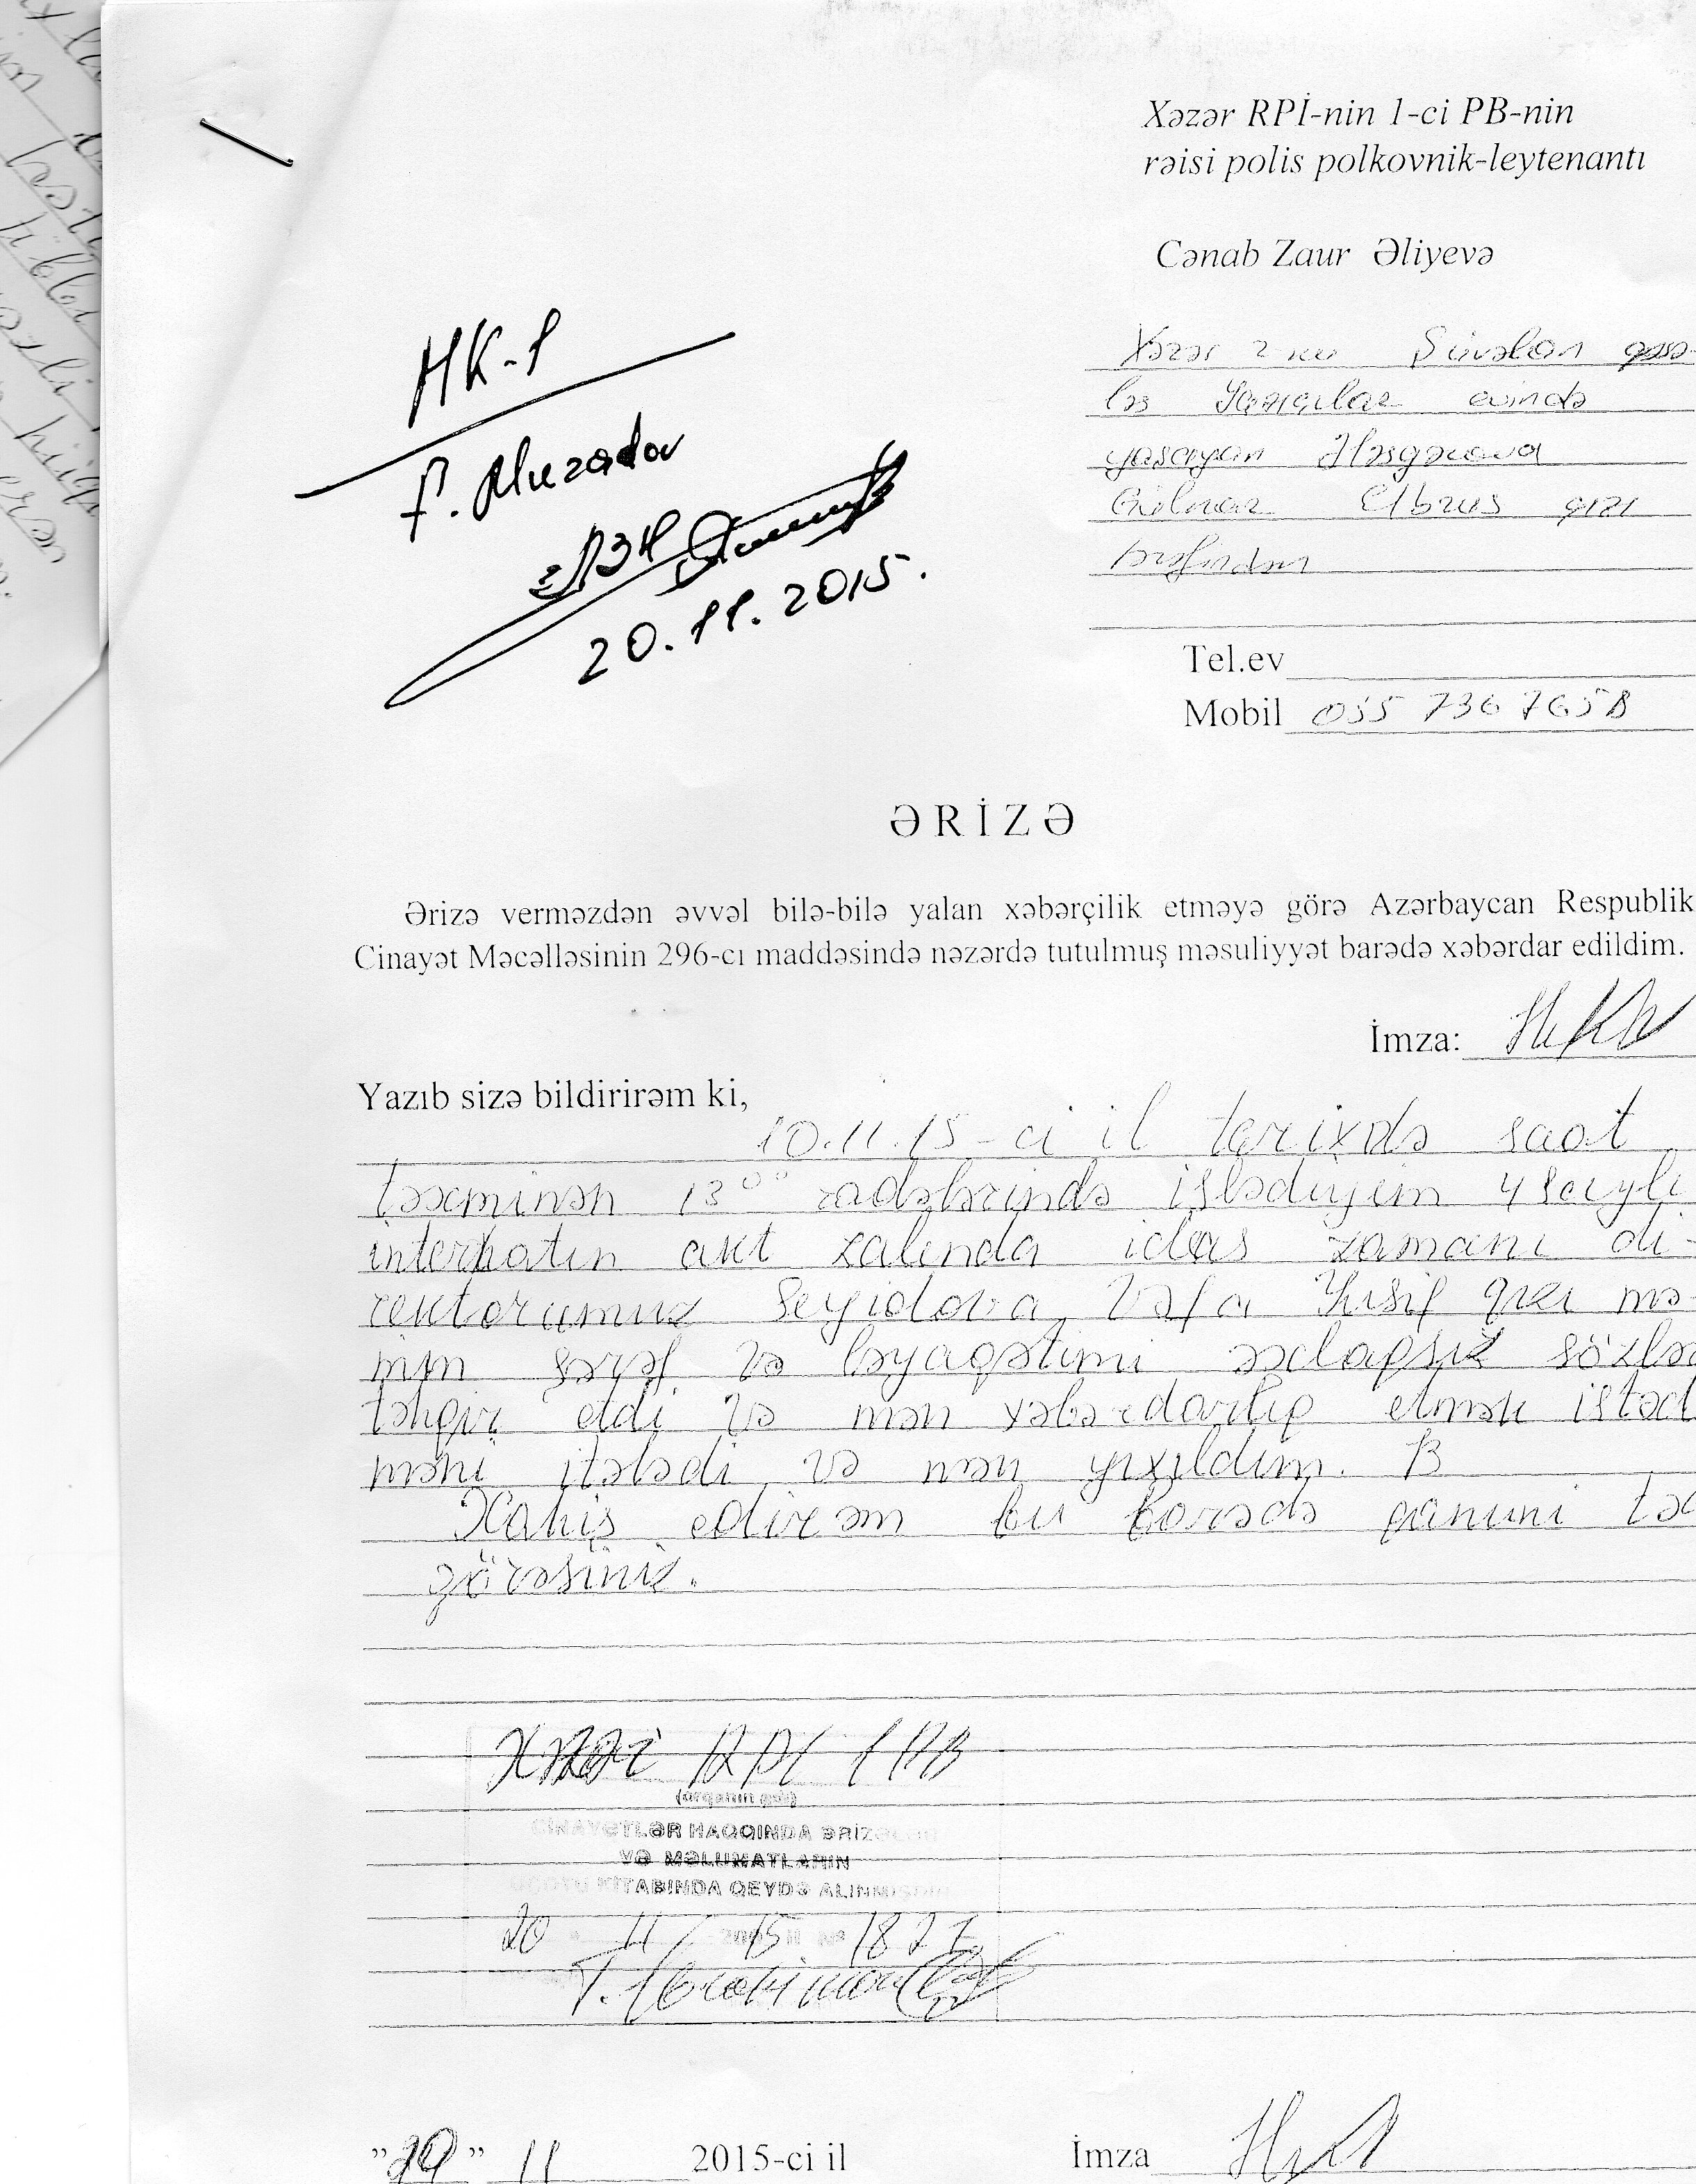 Xəzər RPİ-nin 1-ci PB-nin
rəisi polis polkovnik-leytenantı
Cənab Zaur Əliyevə
Xəzər ray Şüvəlan qəsə-
bəs Yazıçılar evində
yaşayan Həsgərova
Gülnar Elbrus qızı
tərəfindən
Tel.ev
Mobil 055 736 7658
HK-1
F. Muradov
20.11.2015.
ƏRİZƏ
Ərizə verməzdən əvvəl bilə-bilə yalan xəbərçilik etməyə görə Azərbaycan Respublik
Cinayət Məcəlləsinin 296-cı maddəsində nəzərdə tutulmuş məsuliyyət barədə xəbərdar edildim.
İmza:
Yazıb sizə bildirirəm ki,
10.11.15-ci il tarixdə saat
təxminən 13⁰⁰ radələrində işlədiyim 4 saylı
internatın akt zalında iclas zamanı di-
rektorumuz Seyidova Vəfa Yusif qızı mə-
nim şərəf və ləyaqətimi ədəbsiz sözlə
təhqir etdi və mən xəbərdarlıq etmək istəd
məni itələdi və mən yıxıldım. B
Xahiş edirəm bu barədə qanuni təd
görəsiniz.
Xəzər RPİ 1 PB
(orqanın adı)
CİNAYƏTLƏR HAQQINDA ƏRİZƏLƏR
VƏ MƏLUMATLARIN
UÇOTU KİTABINDA QEYDƏ ALINMIŞDIR
20 11 15 № 1827
T. İbrahimov
"20" 11 2015-ci il İmza